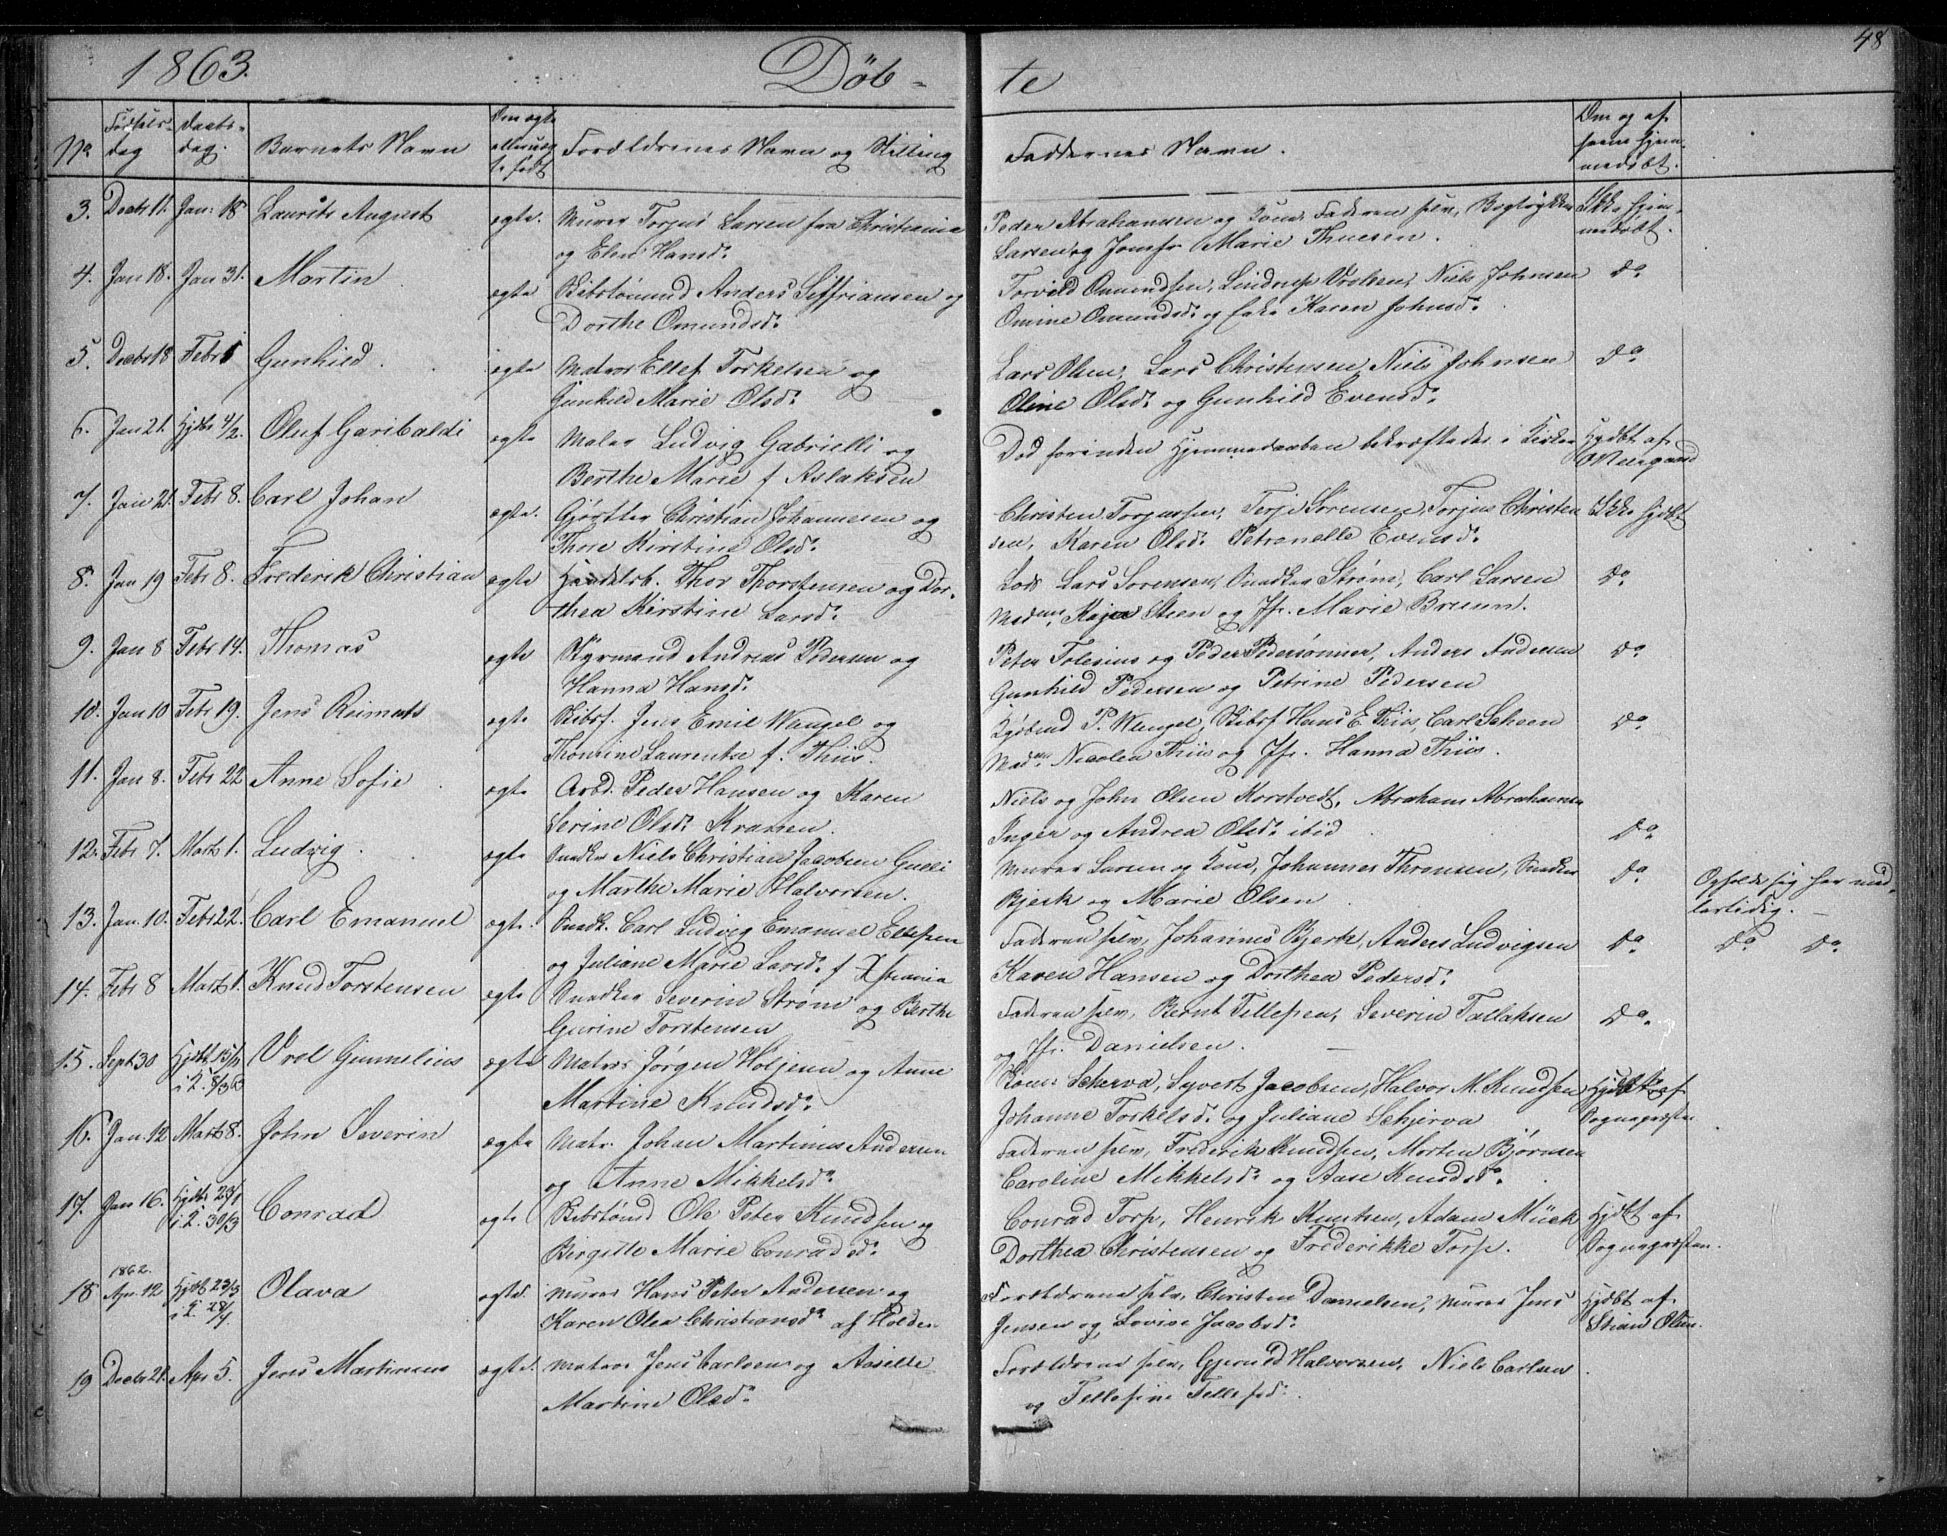 48
1863. Døb- te
No Fødsels- dag Daabs- dag. Barnets Navn Om ægte eller uæg- te født Forældrenes Navn og Stilling Faddernes Navn. Om og af hvem hjem- medøbt.
3. Decbr 11. Jan: 18 Laurits August ægte. Murer Torjus Larsen fra Christiania Peder Abrahamsen og Kone, Faderen selv, Bogtrykker Ikke hjem-
og Elen Hansd: Larsen og Jomfr Marie Thuesen. medøbt.
4. Jan 18. Jan 31. Martin ægte Skibstømmd Anders Seffriansen og Torvild Omundsen, Niels Johnsen Do
Dorthe Omundsd: Omine Omundsd: og Karen Johnsd:
5. Decbr 18 Febr 1 Gunhild. ægte Matros Ellef Torkelsen og Lars Olsen, Lars Christensen, Niels Johnsen Do
Gunhild Marie Olsd: Oline Olsd: og Gunhild Evensd:
6. Jan 21. Hjdbt 4/2. Oluf Garibaldi ægte Maler Ludvig Gabrielli og Død forinden Hjemmedaaben bekræftedes i Kirken Hjdbt af
Berthe Marie f Aslaksen
7. Jan 21. Febr 8. Carl Johan ægte. Gjørtler Christian Johannesen og Christen Torjussen, Terje Sørensen, Torjus Christen Ikke hjdbt
Thore Kirstine Olsd: sen, Karen Olsd: Petronelle Evensd:
8. Jan 19 Febr 8. Frederik Christian ægte Handelsb. Thor Thorstensen og Dor- Lods Lars Sørensen, Snedker Strøm, Carl Larsen Do
thea Kirstine Larsd: Madm: Kaja Steen og Jfr. Marie Bruun.
9. Jan 8 Febr 14. Thomas ægte Styrmand Andreas Pedersen og Peter Tolesius og Peder Pedersønner, Anders Andersen Do
Hanna Hansd: Gunhild Pedersen og Petrine Pedersen
10. Jan 10 Febr 19. Jens Reimerts ægte Skibsf. Jens Emil Wengel og Kjøbmd P. Wengel, Skibsf Hans E. Thiis, Carl Schoen Do
Thomine Laurentse f. Thiis. Madm: Nicolea Thiis og Jfr. Hanna Thiis.
11. Jan 8. Febr 22 Anne Sofie. ægte Arbd. Peder Hansen og Karen Niels og John Olsen Korstvedt, Abraham Abrahamsen
Serine Olsd: Kraasen. Inger og Andrea Olsd: ibid Do
12. Febr 7. Marts 1. Ludvig. ægte Snedker Niels Christian Jacobsen Gulli Murer Larsen og Kone, Johannes Thronsen, Snedker Do Opholde sig her mid-
og Marthe Marie Halvorsen. Bjerk og Marie Olsen lertidig. –
13. Jan. 10. Febr 22. Carl Emanuel ægte. Snedk. Carl Ludvig Emanuel Ellefsen Faderen selv, Johannes Bjerk, Anders Ludvigsen Do Do Do
og Juliane Marie Larsd: f Xstiania Karen Hansen og Dorthea Pedersd:
14. Febr 8 Marts 1. Knud Torstensen ægte Snedker Severin Strøm og Berthe Faderen selv, Bernt Tellefsen, Severin Tallaksen Do
Gurine Torstensen og Jfr. Danielsen.
15. Sept 30 Hjdbt 15/1 i K. 8/3 63 Vrol Gunnelius ægte Matros Jørgen Holjesen og Anne Kone Schervd, Syvert Jacobsen, Halvor M. Knudsen Hjdbt af
Martine Knudsd: Johanne Torkelsd: og Juliane Schjerva Sognepræsten
16. Jan. 12 Marts 8. John Severin ægte Matr. Johan Martinius Andersen Faderen selv, Frederik Knudsen, Morten Bjørnsen
og Anne Mikkelsd: Caroline Mikkelsd: og Aase Knudsd:
17. Jan 16. Hjdbt 20/1 i K. 30/3 Conrad ægte Skibstømd Ole Peter Knudsen og Conrad Torp, Henrik Knutsen, Adam Mück Hjdbt af
Birgitte Marie Conradsd: Dorthea Christensen og Frederikke Torp. Sognepræsten.
1862.
18 Apr. 12 Hjdbt 23/3 i K. 28/4 Olava ægte. Murer Hans Peter Andersen og Forældrene selv, Christen Danielsen, Murer Jens Hjdbt af
Karen Olea Christiansd: af Holden Jensen og Lovise Jacobsd: Olsen.
19 Decbr 21. Apr 5. Jens Martinius ægte. Matros Jens Carlsen og Asselle Forældrene selv, Gjerud Halvorsen, Niels Carlsen
Martine Olsd: og Tellefine Tellefsd: